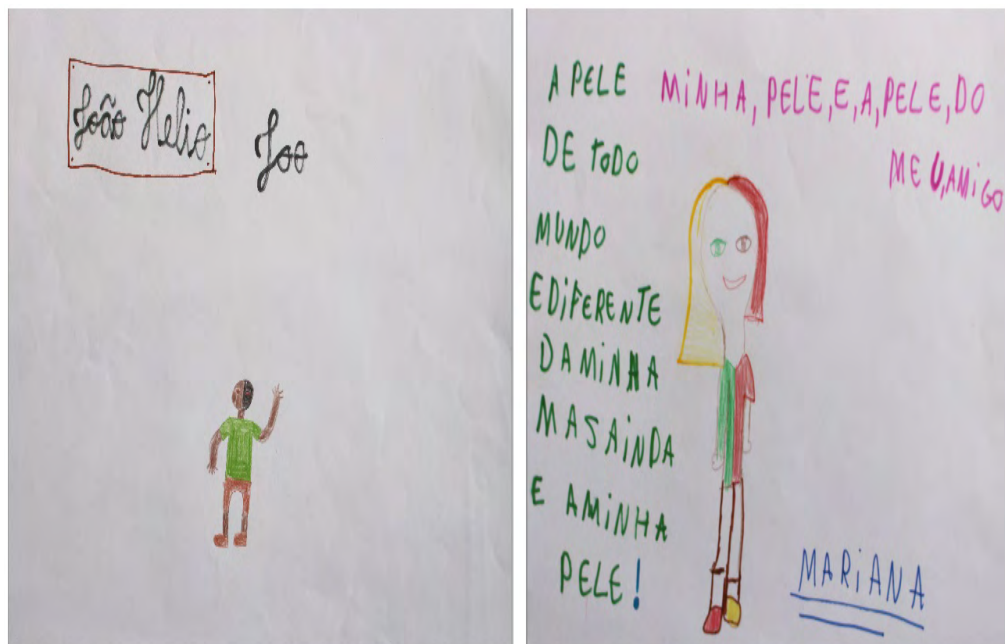 João Helio
Joo
A PELE
DE TODO
MUNDO
EDIFERENTE
DAMINHA
MASAINDA
E AMINHA
PELE!
MINHA, PELE, E, A, PELE, DO
MEU, AMIGO
MARIANA